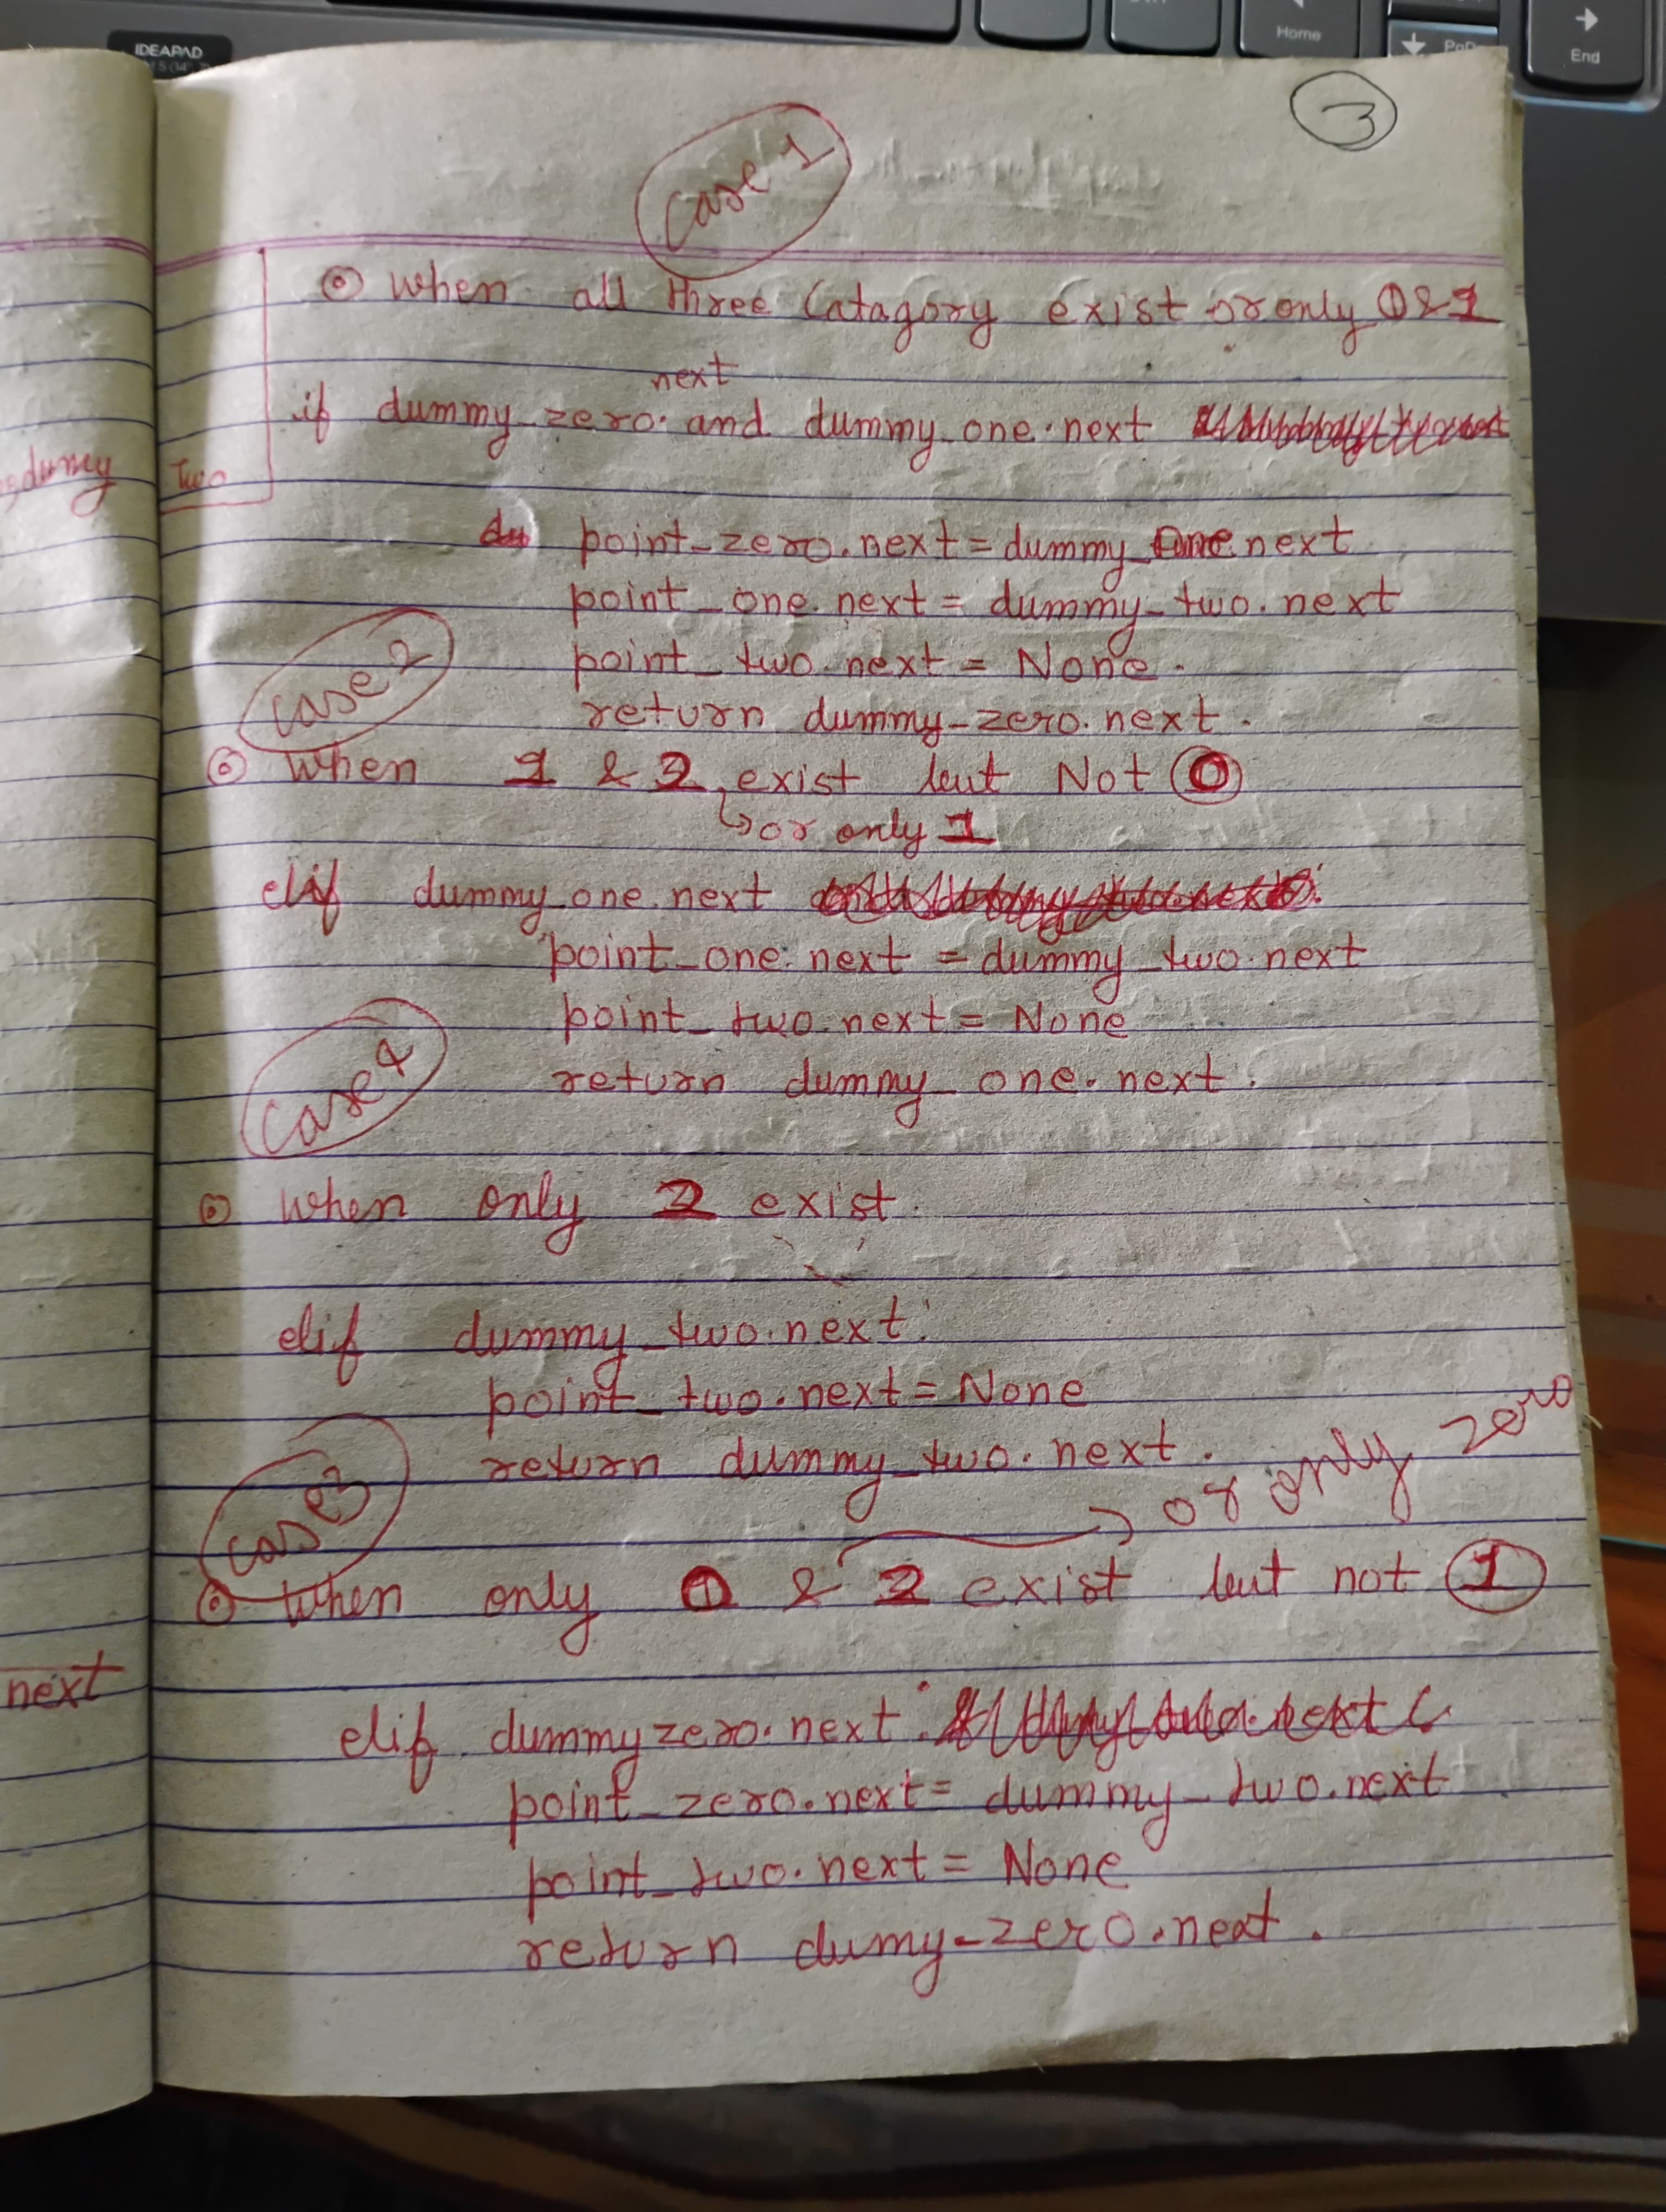 IDEAPAD
Home
PgDn
End
3
Case 1
when all three Catagory exist or only 0 & 1
next
if dummy_zero. and dummy_one.next
dumy
Two
point_zero.next = dummy_One.next
point_one.next = dummy_two.next
Case 2
point_two.next = None.
return dummy_zero.next.
when 1 & 2 exist but Not 0
↳ or only 1
elif dummy_one.next
point_one.next = dummy_two.next
point_two.next = None
Case 4
return dummy_one.next.
when only 2 exist.
elif dummy_two.next:
point_two.next = None
return dummy_two.next.
Case 3
→ or only zero
when only 0 & 2 exist but not 1
next
elif dummyzero.next:
point_zero.next = dummy_two.next
point_two.next = None
return dumy_zero.next.